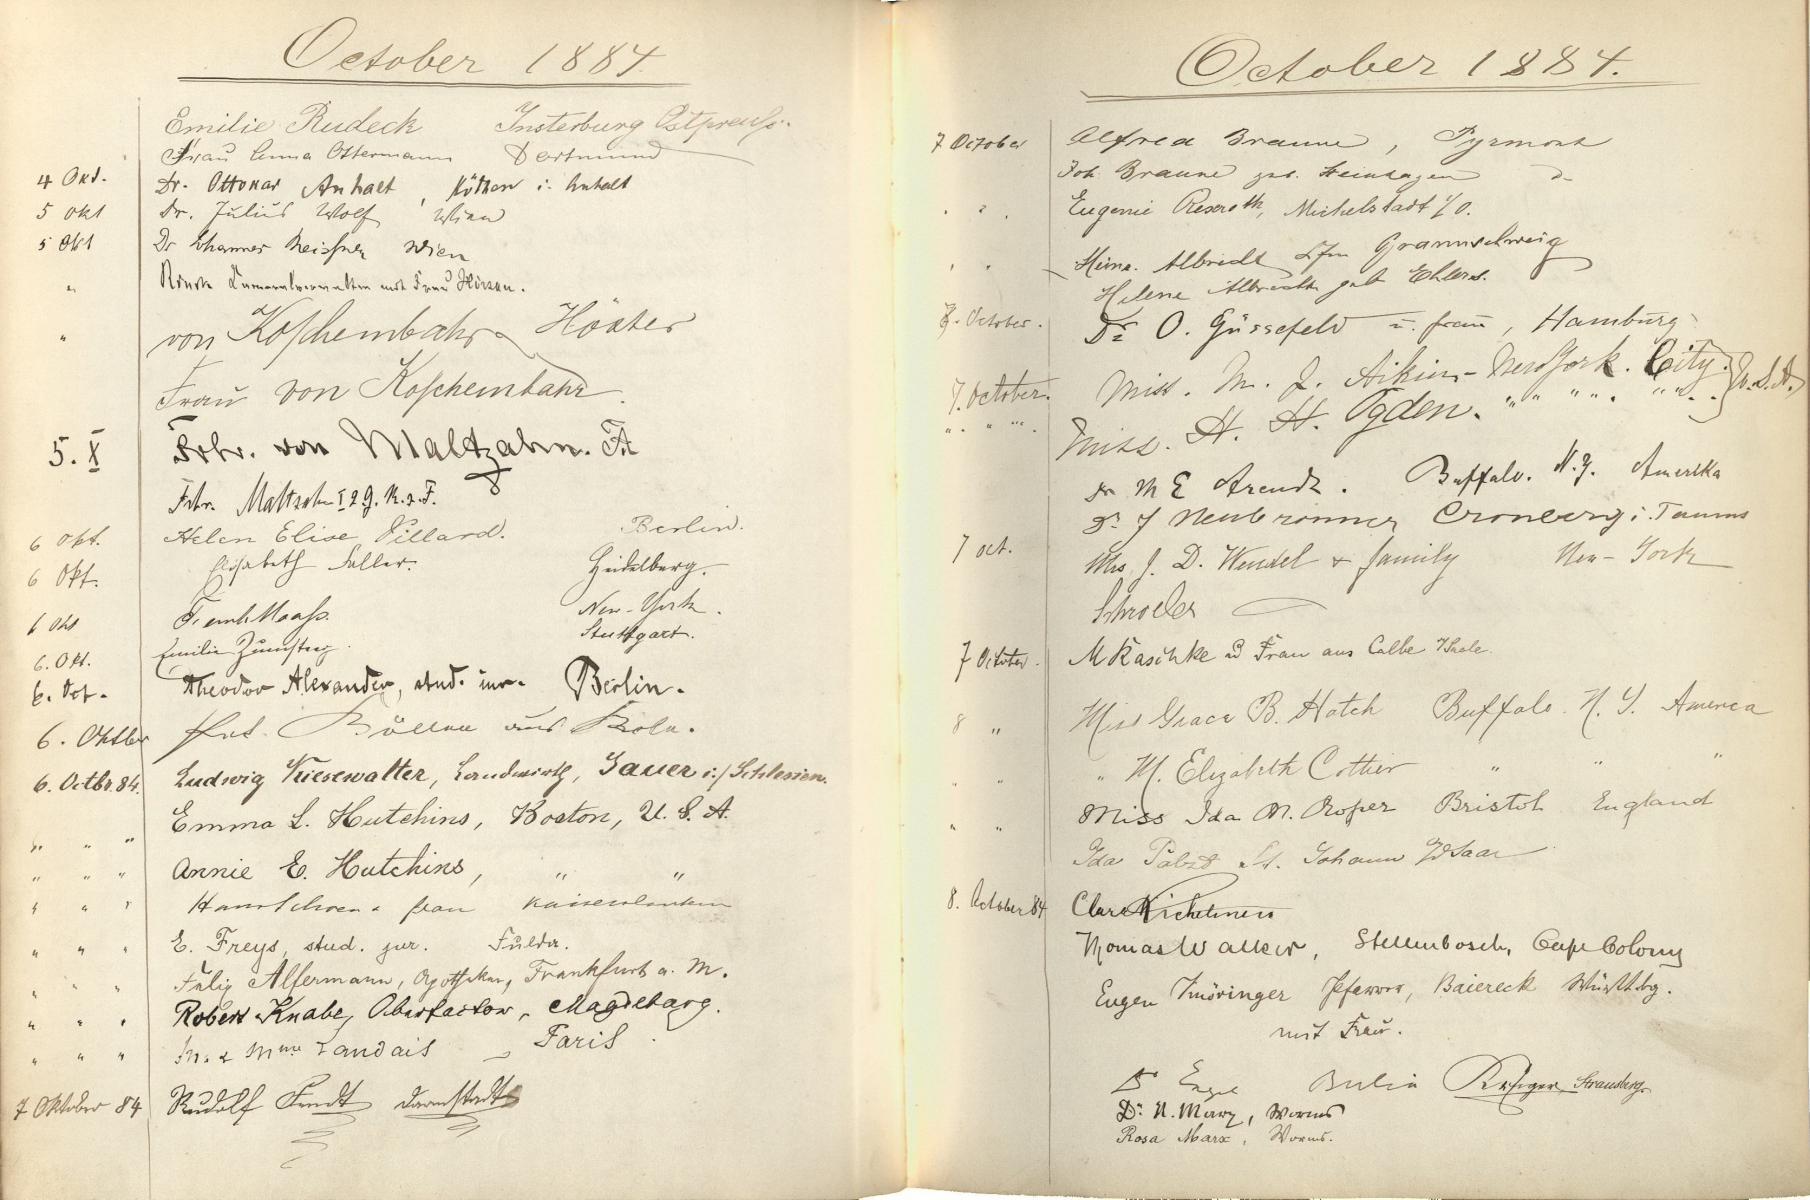 October 1884.
Emilie Rudeck Insterburg Ostpreuß.
Frau Anna Ostermann Dortmund
4 Okt. Dr. Ottokar Anhalt, Köthen i. Anhalt
5 Okt Dr. Julius Wolf Wien
5 Okt Dr Johannes Meißner Wien
" mit Frau
" von Koschembahr Höxter
Frau von Koschembahr.
5. X Frhr. von Maltzahn.
Frhr. Maltzahn
6 Okt. Helen Elise Villard. Berlin.
6 Okt. Elisabeth Heidelberg.
6 Okt Maaß. New-York.
6. Okt. Emilie Zumsteeg. Stuttgart.
6. Oct. Theodor Alexander, stud. iur. Berlin.
6. Oktbr aus Köln.
6. Octbr. 84. Ludwig Kiesewalter, Landwirth, Jauer i/ Schlesien.
" " " Emma L. Hutchins, Boston, U. S. A.
" " " Annie E. Hutchins, " "
" " " Frau Kaiserslautern
" " " E. Freys, stud. jur. Fulda.
" " " Alfermann, Apotheker, Frankfurt a. M.
" " " Robert Knabe, Magdeburg.
" " " M. & Mme Landais Paris
7 Oktober 84 Rudolf Fendt Darmstadt
October 1884.
7 October Alfred Braune, Pyrmont
Joh. Braune geb. Steinhagen
" " Eugenie Rexroth, Michelstadt i/O.
" " Heinr. Albrecht Braunschweig
Helene Albrecht geb Ehlers.
8. October. Dr O. Güssefeld u. Frau, Hamburg
7. October. Miss. M. J. Aikins - New York. City. U. S. A.
" " " Miss. H. H. Ogden. " " " " " "
Dr M E Arendt. Buffalo. N. Y. Amerika
Dr J Neubronner Cronberg i. Taunus
7 oct. Mrs J. D. Wendel & family New-York
Schroeder
7 October. M Raschke u Frau aus Calbe /Saale.
8 " Miss Grace B. Hatch Buffalo. N. Y. America
" " " M. Elizabeth Cottier " " "
" " Miss Ida M. Roper Bristol England
Ida Pabst St. Johann Saar
8. October 84 Clara
Thomas Walker, Stellenbosch, Cape Colony
Eugen Pfarrer, Baiereck Württbg.
mit Frau.
Dr Engel Berlin Krüger, Strausberg.
Dr. N. Marx, Worms
Rosa Marx, Worms.